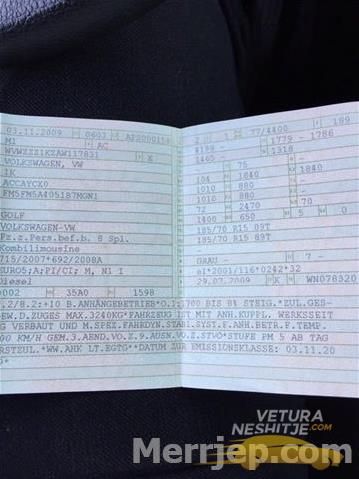 03.11.2009 0603 AP2000158
M1 AC
WVWZZZ1KZAW117831 X
VOLKSWAGEN, VW
1K
ACCAYCX0
FM5FM5A4051B7MGN1
GOLF
VOLKSWAGEN-VW
Fz.z.Pers.bef.b. 8 Spl.
Kombilimousine
715/2007*692/2008A
EURO5;A;PI/CI; M, N1 I
Diesel
0002 35A0 1598
77/4400 189
4199 - 1779 - 1786
1460 - 1318
- 75 -
104 1840 1840
1010 880 -
1010 880 -
72 2470 70
1400 650 5 0
185/70 R15 89T
185/70 R15 89T
GRAU - 7 -
e1*2001/116*0242*32
29.07.2009 K WN078320
.2/8.2:+10 B.ANHÄNGEBETRIEB*O.1:1700 BIS 8% STEIG.*ZUL.GES-
GEW.D.ZUGES MAX.3240KG*FAHRZEUG IST MIT ANH.KUPPL. WERKSSEIT
G VERBAUT UND M.SPEZ.FAHRDYN.STABI.SYST.F.ANH.BETR.F.TEMP.
00 KM/H GEM.3.AEND.VO.Z.9.AUSN.VO.Z.STVO*STUFE PM 5 AB TAG
ERSTZUL.*WW.AHK LT.EGTG*DATUM ZUR EMISSIONSKLASSE: 03.11.20
09*
VETURA
NESHITJE.com
Merrjep.com